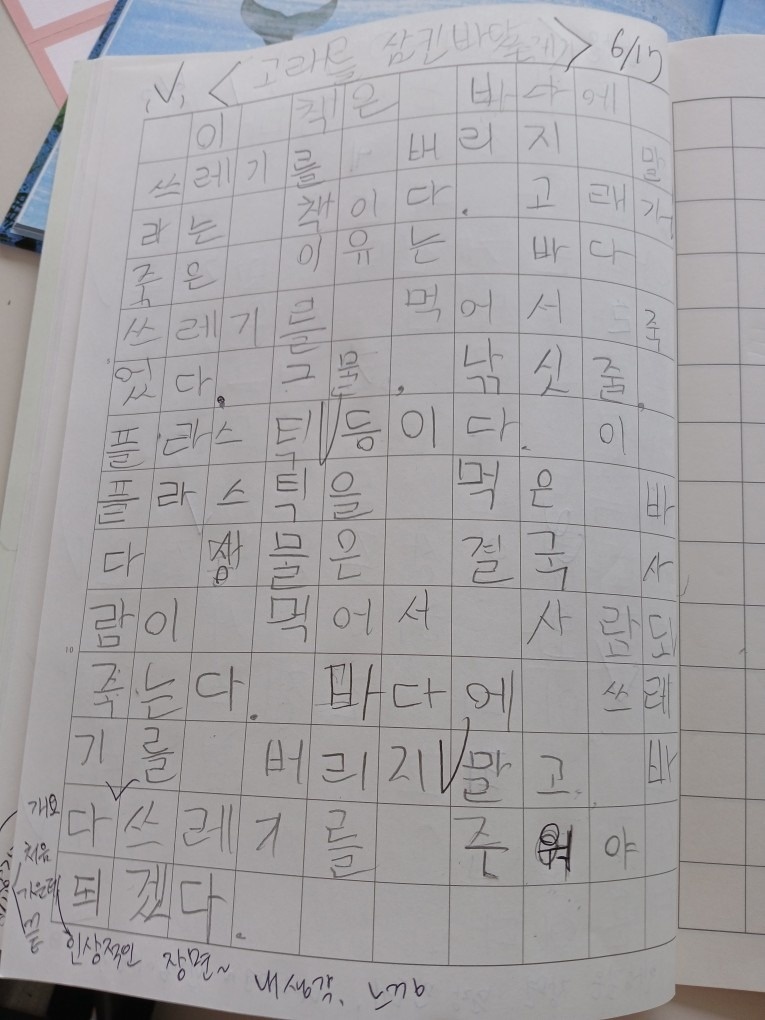 <고래를 삼킨 바닷 > 6/17
이 책은 바다에
쓰레기를 버리지 말
라는 책이다. 고래가
죽은 이유는 바다
쓰레기를 먹어서 죽
었다. 그물, 낚싯줄,
플라스틱 등이다. 이
플라스틱을 먹은 바
다 물은 결국 사
람이 먹어서 사람도
죽는다. 바다에 쓰레
기를 버리지 말고 바
다 쓰레기를 주워야
되겠다.
개요
처음
가운데
끝
인상적인 장면~ 내생각, 느낌